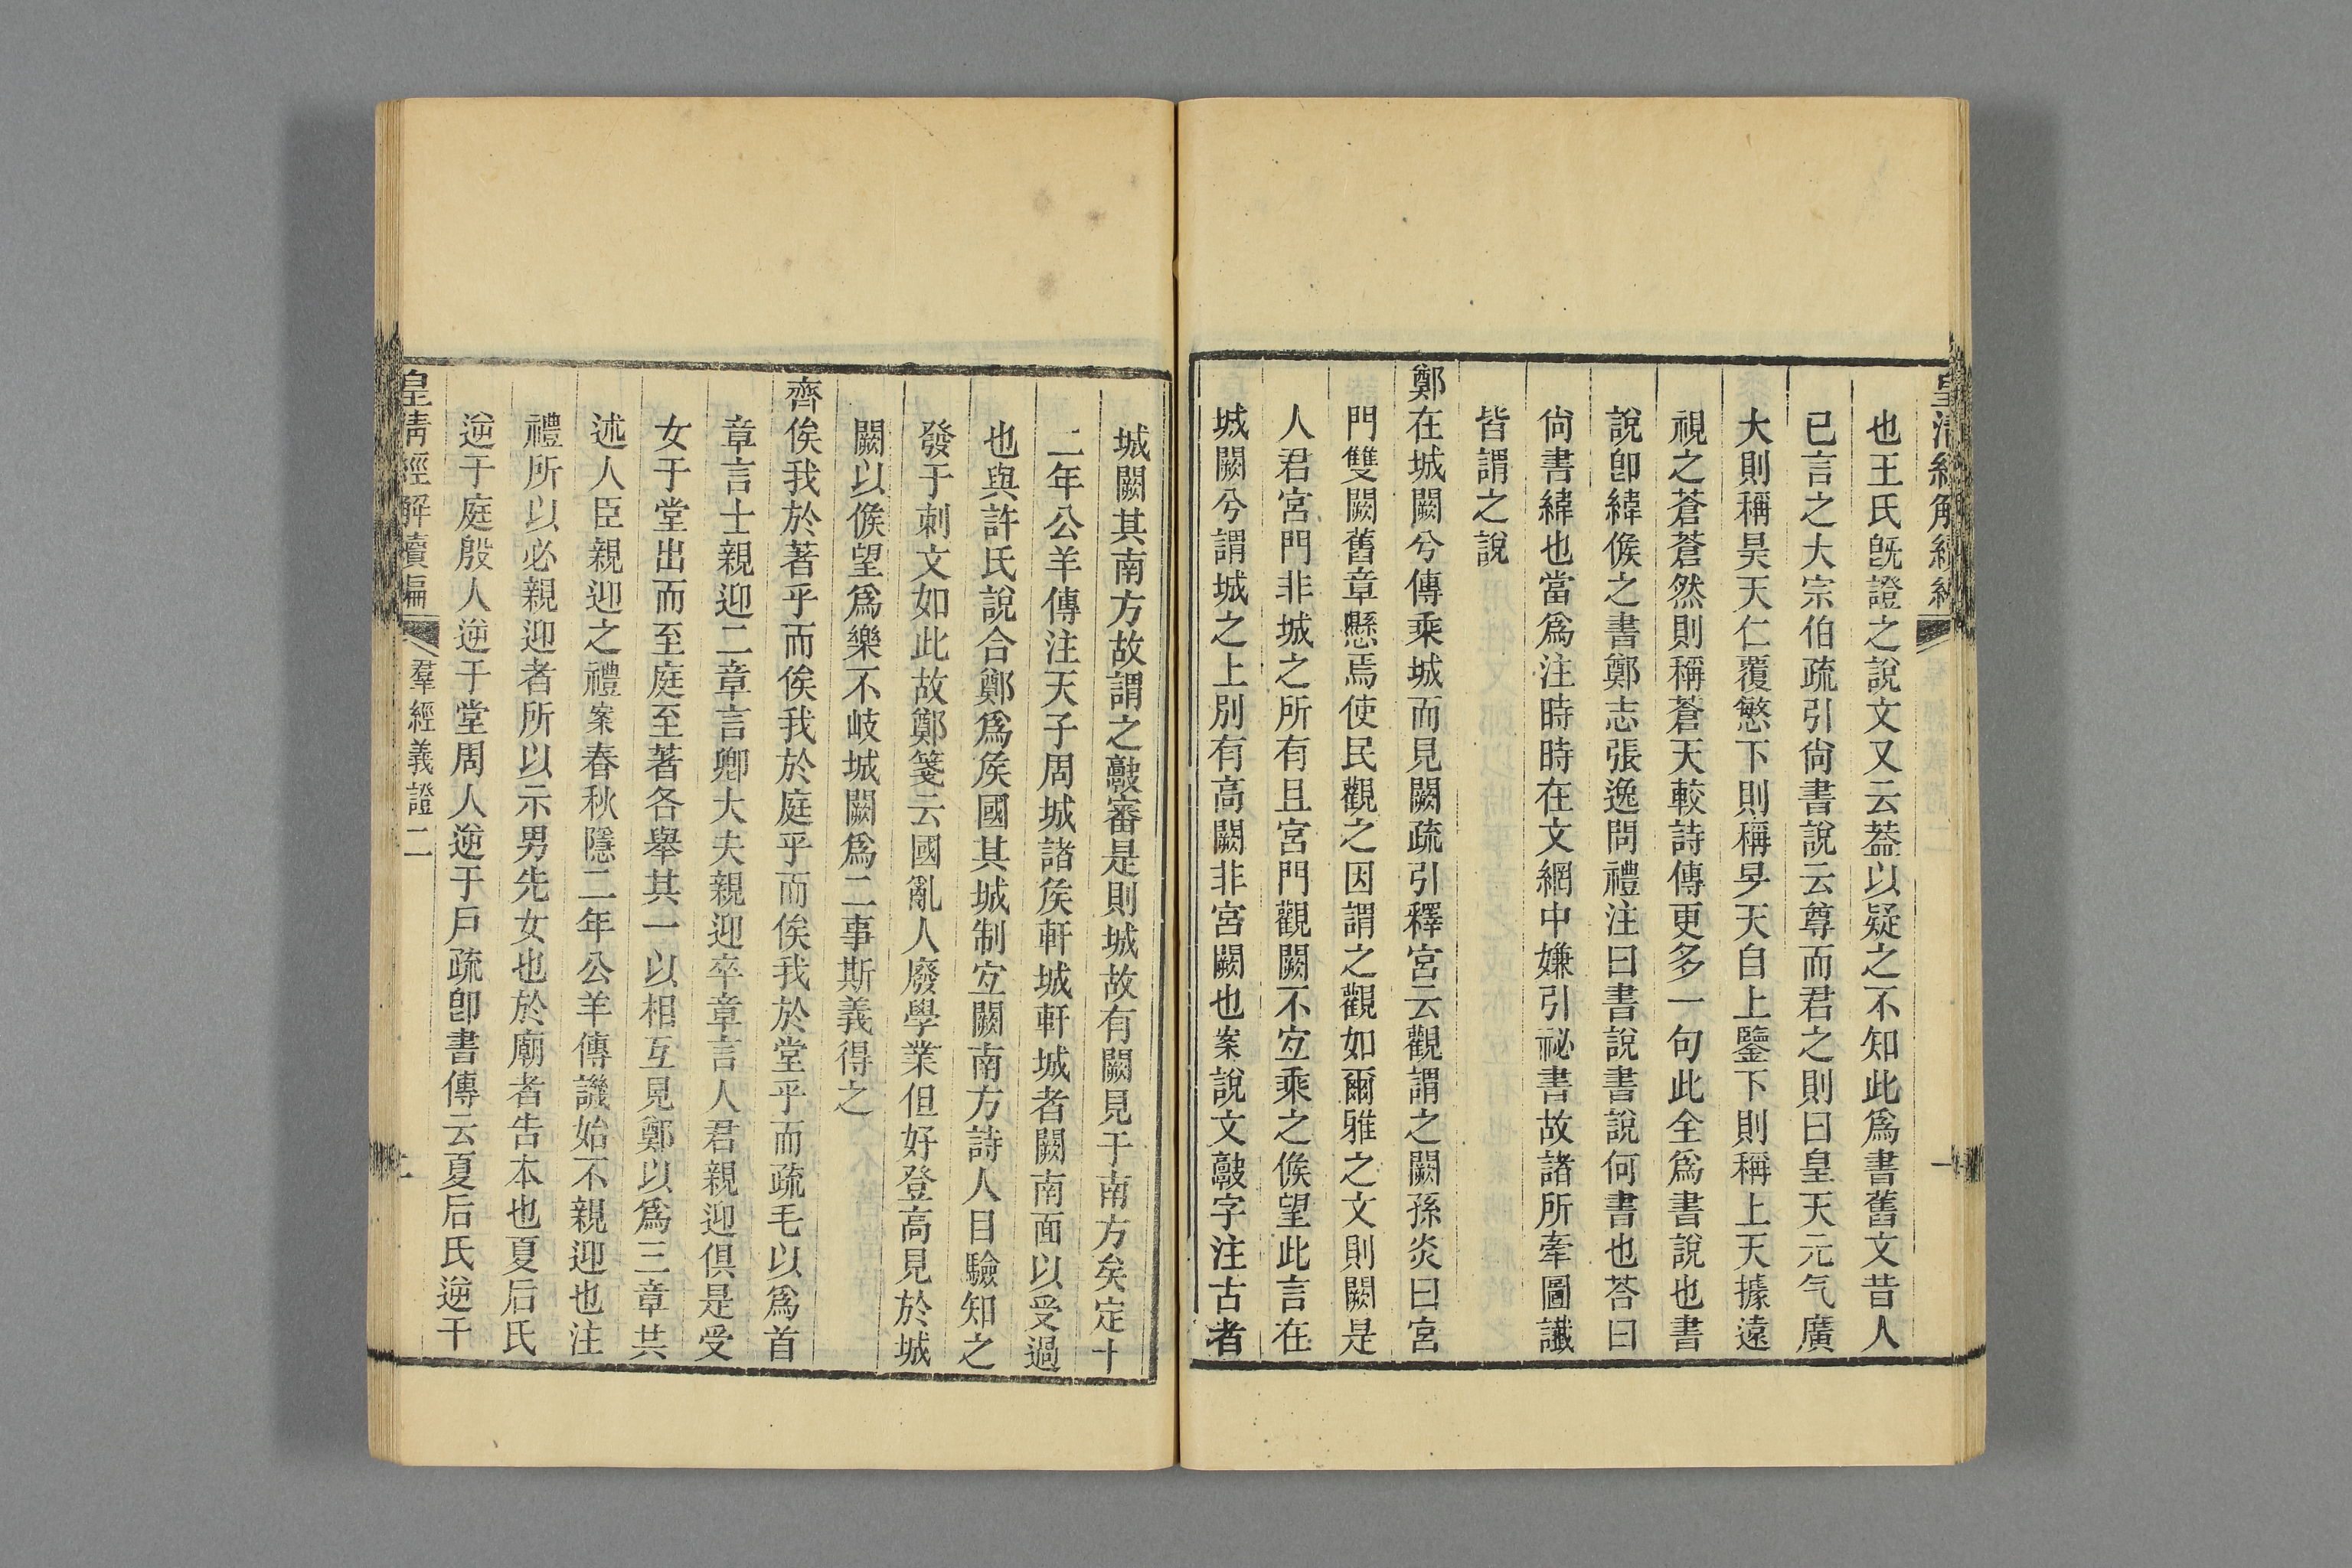 也王氏旣證之說文又云葢以疑之不知此爲書舊文昔人
已言之大宗伯疏引尙書說云尊而君之則曰皇天元气廣
大則稱昊天仁覆慜下則稱旻天自上鑒下則稱上天據遠
視之蒼蒼然則稱蒼天較詩傳更多一句此全爲書說也書
說卽緯候之書鄭志張逸問禮注曰書說書說何書也荅曰
尙書緯也當爲注時時在文網中嫌引祕書故諸所牽圖讖
皆謂之說
鄭在城闕兮傳乘城而見闕疏引釋宮云觀謂之闕孫炎曰宮
門雙闕舊章懸焉使民觀之因謂之觀如爾雅之文則闕是
人君宮門非城之所有且宮門觀闕不宐乘之候望此言在
城闕兮謂城之上別有高闕非宮闕也案說文𨷻字注古者
城闕其南方故謂之𨷻審是則城故有闕見于南方矣定十
二年公羊傳注天子周城諸矦軒城軒城者闕南面以受過
也與許氏說合鄭爲矦國其城制宐闕南方詩人目驗知之
發于刺文如此故鄭箋云國亂人廢學業但好登高見於城
闕以候望爲樂不岐城闕爲二事斯義得之
齊俟我於著乎而俟我於庭乎而俟我於堂乎而疏毛以爲首
章言士親迎二章言卿大夫親迎卒章言人君親迎俱是受
女于堂出而至庭至著各舉其一以相互見鄭以爲三章共
述人臣親迎之禮案春秋隱二年公羊傳譏始不親迎也注
禮所以必親迎者所以示男先女也於廟者告本也夏后氏
逆于庭殷人逆于堂周人逆于戶疏卽書傳云夏后氏逆于
皇淸經解續編 羣經義證二 二